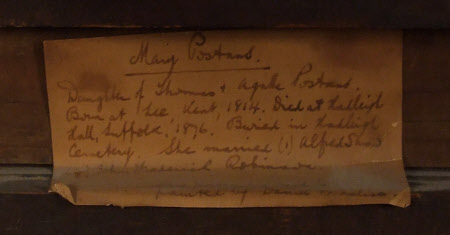 Mary Postans.
Daughter of Thomas & Agatha Postans.
Born at Lee, Kent, 1814. Died at Hadleigh
Hall, Suffolk, 1876. Buried in Hadleigh
Cemetery. She married (1) Alfred Shaw
Robinson
painted by Daniel